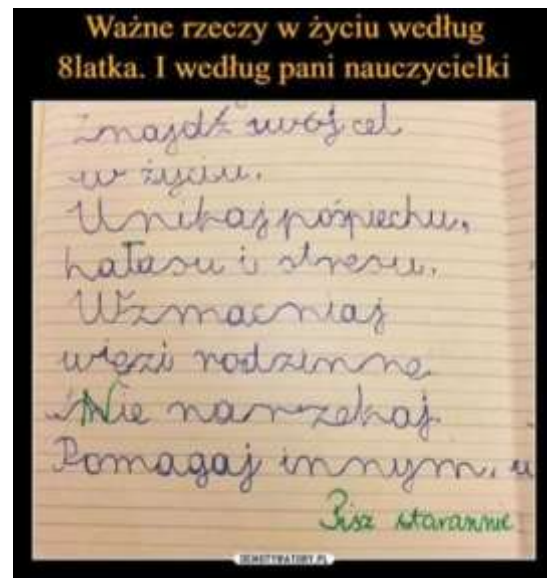 Ważne rzeczy w życiu według
8latka. I według pani nauczycielki
Znajdź swój cel
w życiu.
Unikaj pośpiechu,
hałasu i stresu.
Wzmacniaj
więzi rodzinne
Nie narzekaj
Pomagaj innym.
Pisz starannie
DEMOTYWATORY.PL